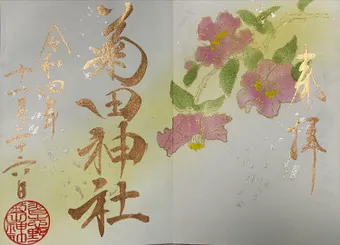 奉拝
菊田神社
令和四年
十一月二十六日